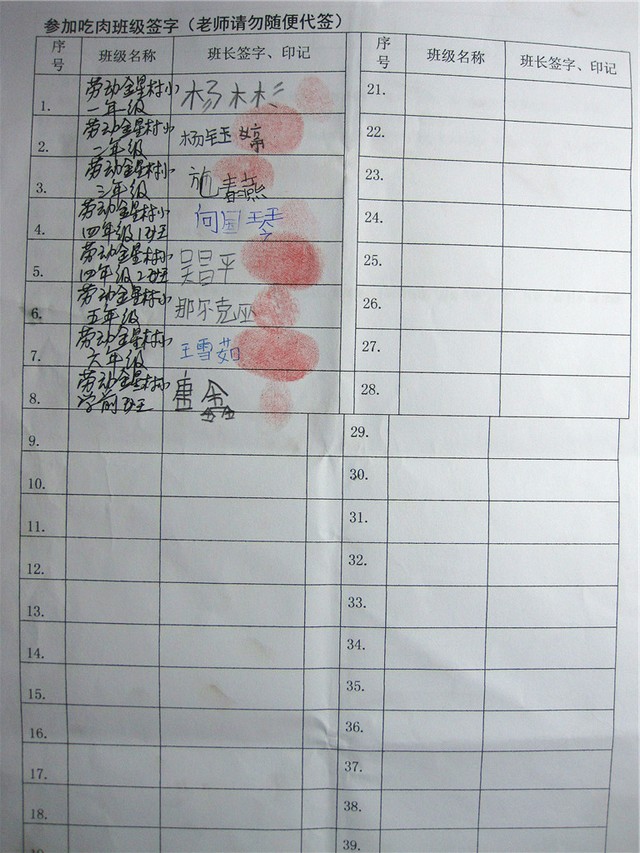 参加吃肉班级签字（老师请勿随便代签）
序号 班级名称 班长签字、印记 序号 班级名称 班长签字、印记
1. 劳动金星村小一年级 杨林杉 21.
2. 劳动金星村小二年级 杨钰婷 22.
3. 劳动金星村小三年级 施春燕 23.
4. 劳动金星村小四年级1班 向国琴 24.
5. 劳动金星村小四年级2班 吴昌平 25.
6. 劳动金星村小五年级 那尔克巫 26.
7. 劳动金星村小六年级 王雪茹 27.
8. 劳动金星村小学前班 唐鑫 28.
9. 29.
10. 30.
11. 31.
12. 32.
13. 33.
14. 34.
15. 35.
16. 36.
17. 37.
18. 38.
39.